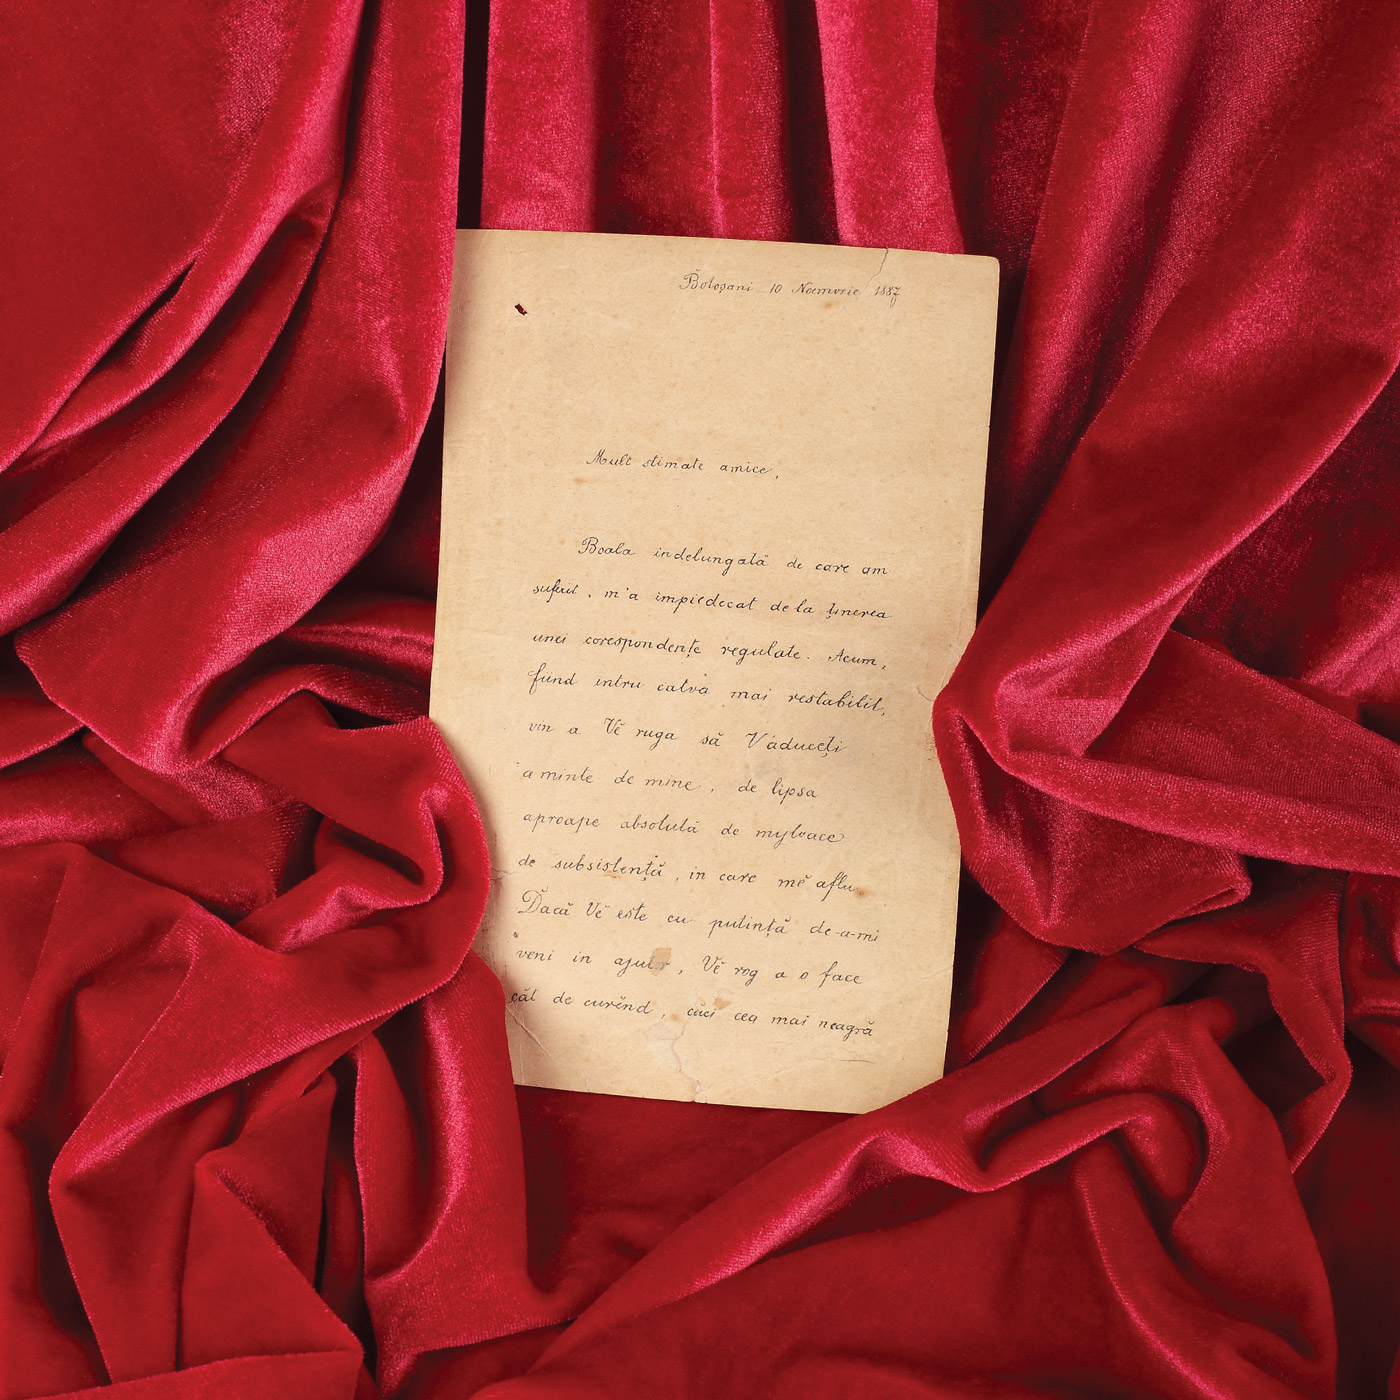 Botoșani 10 Noemvrie 1887
Mult stimate amice,
Boala indelungată de care am
suferit, m'a impiedecat de la ținerea
unei corespondențe regulate. Acum,
fiind intru catva mai restabilit,
vin a Vĕ ruga să Văduceți
aminte de mine, de lipsa
aproape absolută de myloace
de subsistență, in care mĕ aflu.
Dacă Vĕ este cu putință de-a-mi
veni in ajutor, Vĕ rog a o face
căt de curĕnd, căci cea mai neagră